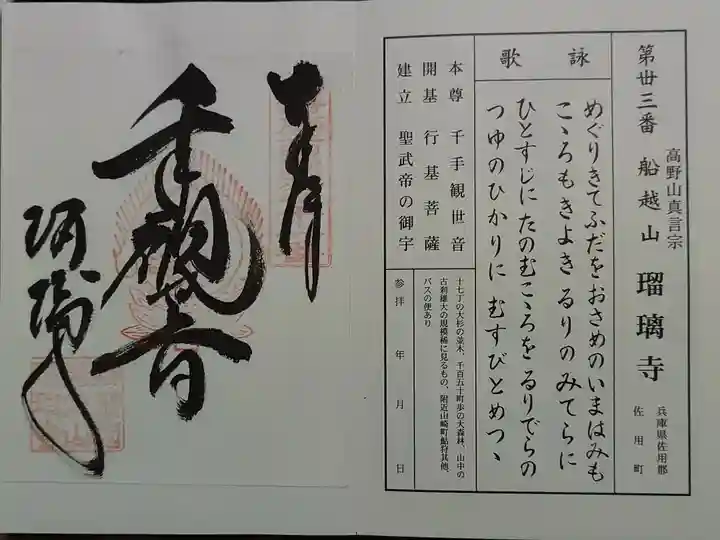 第丗三番 船越山 瑠璃寺
高野山真言宗
兵庫県佐用郡
佐用町
詠歌
めぐりきてふだをおさめのいまはみも
こゝろもきよき るりのみてらに
ひとすじにたのむこゝろをるりでらの
つゆのひかりに むすびとめつゝ
本尊 千手観世音
開基 行基菩薩
建立 聖武帝の御宇
十七丁の大杉の並木、千百五十町歩の大森林、山中の
古刹雄大の規模稀に見るもの、附近山崎町鮎狩其他、
バスの便あり
参拝 年 月 日
奉拝
千手観音